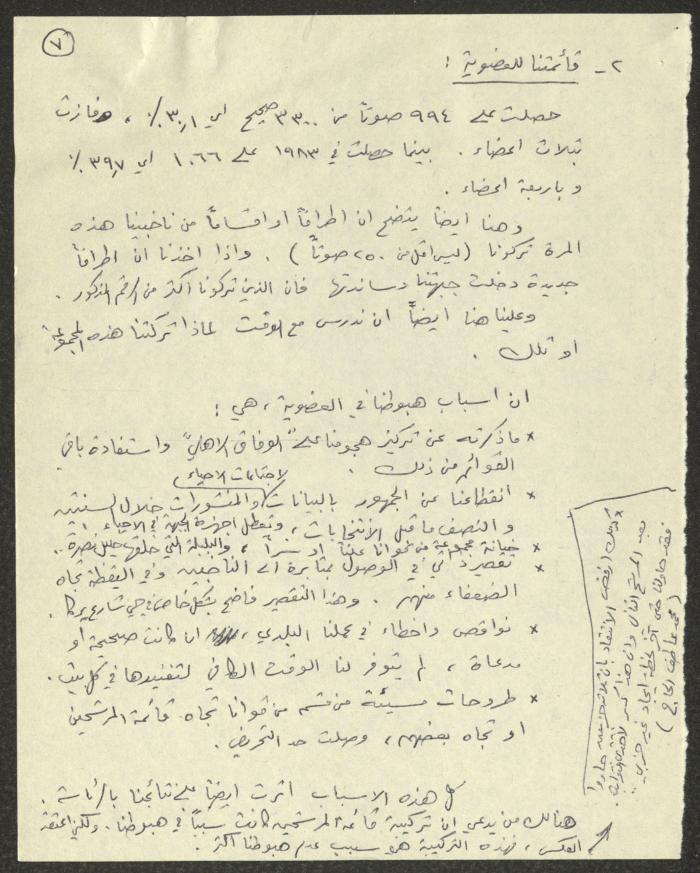 ٧
٢- قائمتنا للعضوية :
حصلت على ٩٩٤ صوتاً من ٣٣٠٠ صحيح اي ٣٠,١٪ ، وفازت
بثلاث اعضاء . بينما حصلت في ١٩٨٣ على ١٠٦٦ اي ٣٩,٧٪
وباربعة اعضاء .
وهنا ايضاً يتضح ان اطرافاً او اقساماً من ناخبينا هذه
المرة تركونا (ليس اقل من ٢٥٠ صوتاً) . واذا اخذنا ان اطرافاً
جديدة دخلت جبهتنا وساندتها فان الذين تركونا اكثر من الرقم المذكور .
وعلينا هنا ايضاً ان ندرس مع الوقت لماذا تركتنا هذه المجموعة
او تلك .
ان اسباب هبوطنا في العضوية ، هي :
* ما ذكرته عن تركيز هجومنا على "الوفاق الاهلي" واستفادة باقي
القوائم من ذلك .
* انقطاعنا عن الجمهور بالبيانات والمنشورات لاجتماعات الاحياء خلال السنتين
والنصف ما قبل الانتخابات ، وتعطل اجهزة الجبهة في الاحياء ..
* خيانة مجموعة من قوانا علناً او سراً ، والبلبلة التي خلقها
* تقصير في الوصول بمثابرة الى الناخبين وفي اليقظة تجاه
الضعفاء منهم . وهذا التقصير فاضح بشكل خاص في حي شارع يركا .
* نواقص واخطاء في عملنا البلدي ، ان كانت صحيحة او
مدعاة ، لم يتوفر لنا الوقت الكافي لتفنيدها في كل بيت .
* طروحات مسيئة من قسم من قوانا تجاه قائمة المرشحين
او تجاه بعضهم ، وصلت حد التحريض .
كل هذه الاسباب اثرت ايضاً على نتائجنا بالرئاسة .
هنالك من يدعي ان تركيبة قائمة المرشحين كانت سبباً في هبوطنا . ولكني اعتقد
العكس ، فهذه التركيبة هي سبب عدم هبوطنا اكثر .